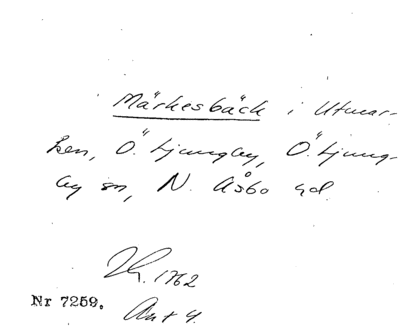 Märkesbäck i Utmar-
ken, Ö. Ljungby, Ö. Ljung-
by sn, N. Åsbo hd.
1762
Nr 7259. Akt 4.